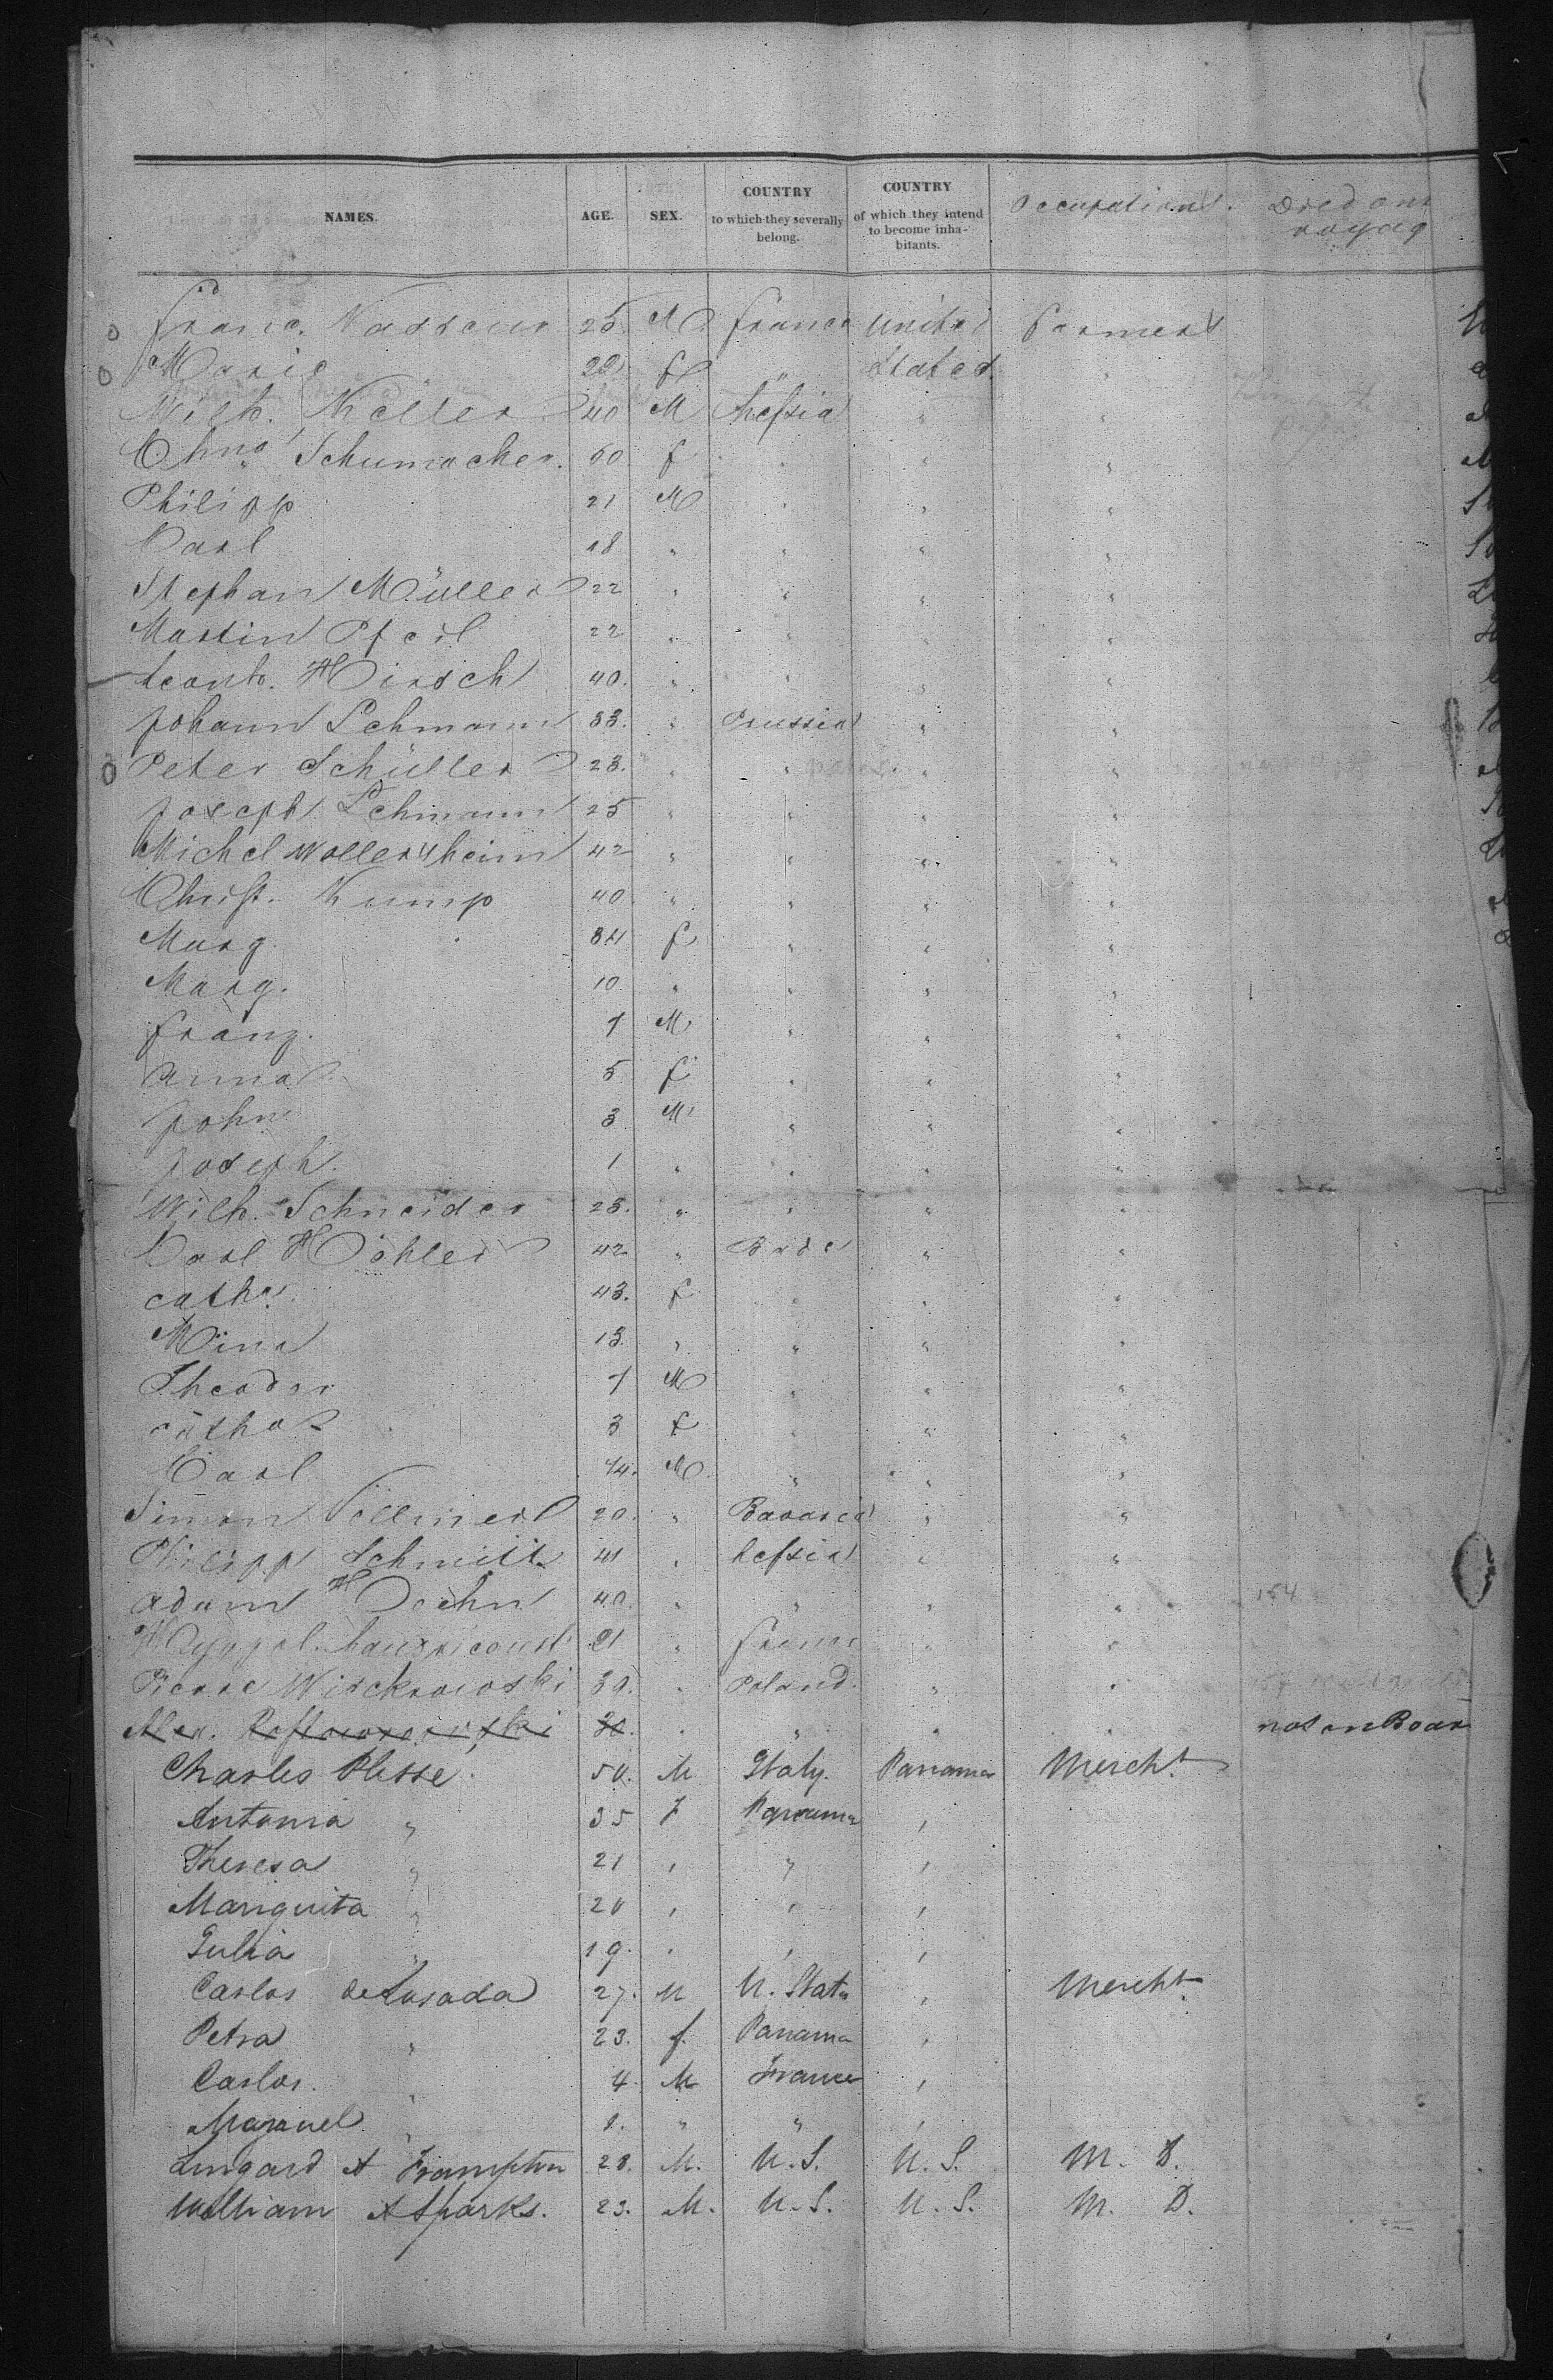 NAMES. AGE. SEX. COUNTRY to which they severally belong. COUNTRY of which they intend to become inhabitants. Occupation. Died on voyag
Franc. Vasseur 25 M France United Farmers
Marie 22 f " States "
Wilh. Keller 40 M Hessia " "
Chna Schumacher. 50 f " " "
Philipp 21 M " " "
Carl 18 " " " "
Stephan Müller 22 " " " "
Martin Pfeil 22 " " " "
Leonh. Hirsch 40. " " " "
Johann Lehmann 33. " Prussia " "
Peter Schüller 23. " " " "
Joseph Lehmann 25 " " " "
Michel Wollersheim 42 " " " "
Christ. Kump 40 " " " "
Marg. 34 f " " "
Marg. 10 " " " "
Franz. 7 M " " "
Anna 5 f " " "
John 3 M " " "
Joseph. 1 " " " "
Wilh. Schneider 25. " " " "
Carl Höhler 42 " Bade " "
Catha. 43. f " " "
Mina 13. " " " "
Theodor 7 M " " "
Catha 3 f " " "
Carl 14. M " " "
Simon Vollmer 20. " Bavaria " "
Philipp Schmitt 41 " Hessia " "
Adam Hoehn 40. " " " " 154
21 " France " "
Pierre Wisckrowski 39. " Poland. " "
Alex. 30. " " " " not on Boar
Charles Plisse. 50. M Italy. Panama Mercht
Antonia " 35 f Panama "
Theresa " 21 " " "
Mariquita " 20 " " "
Julia " 19. " " "
Carlos de Losada 27. M U. States " Mercht
Petra " 23. f. Panama "
Carlos. " 4 M France "
Manuel " 1. " " "
Lingard A Frampton 28. M. U.S. U.S. M. D.
William A Sparks. 23. M. U.S. U.S. M. D.